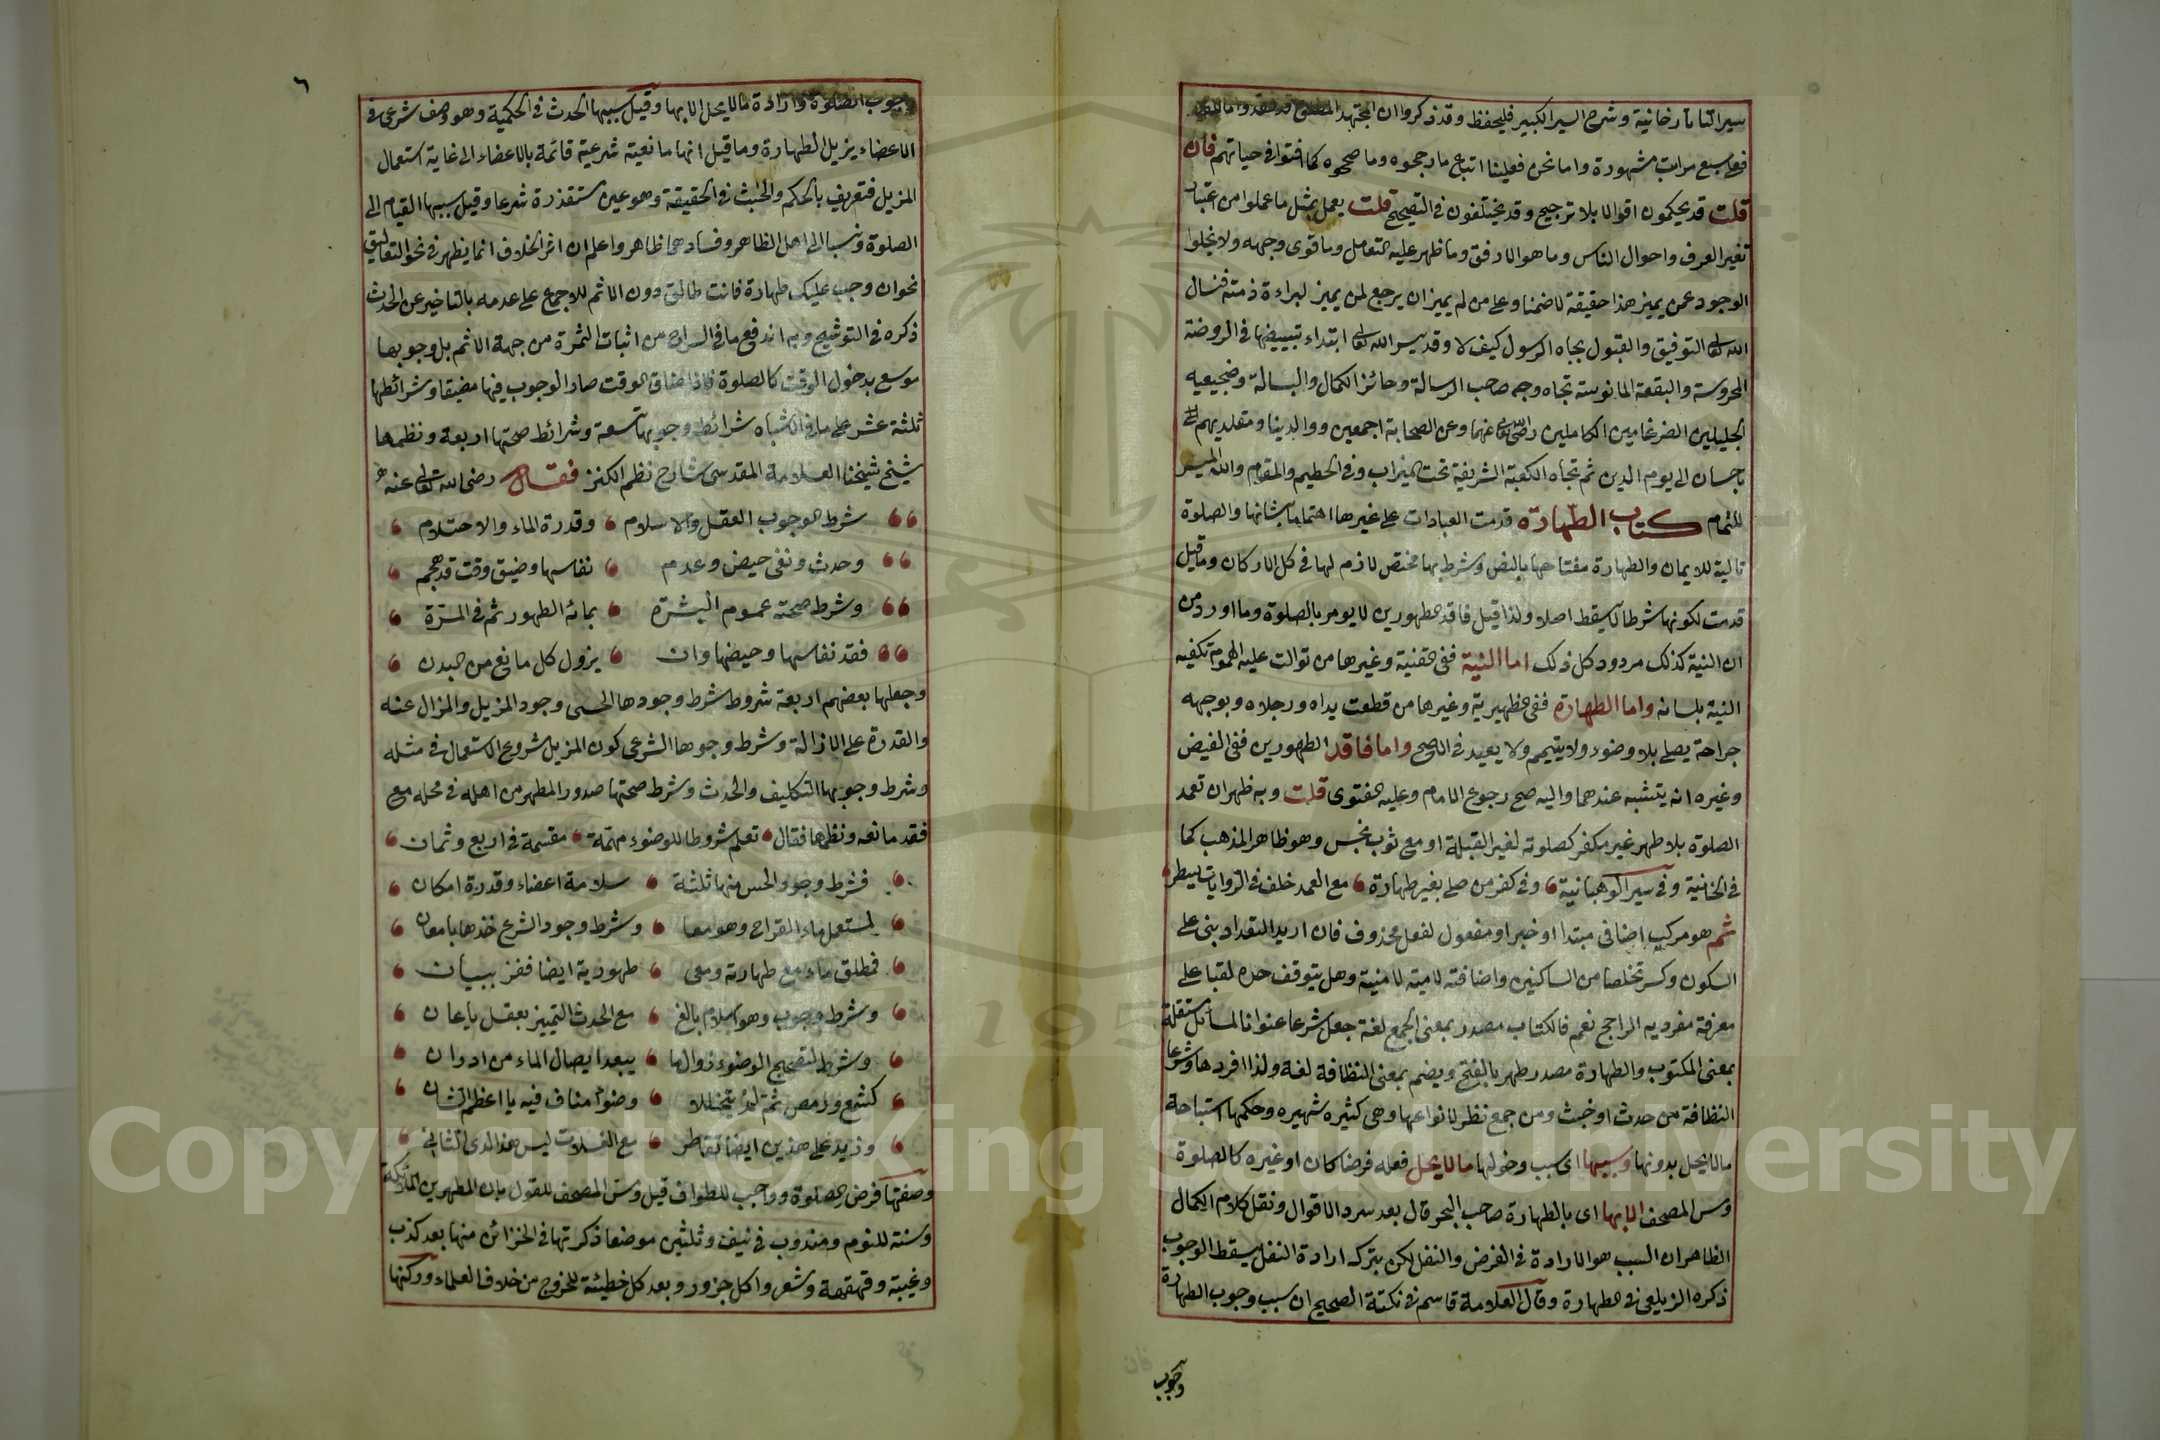 سير التاتارخانية وشرح السير الكبير فليحفظ وقد ذكروا ان المجتهد المطلق قد فقد واما المقيد
فعلى سبع مراتب مشهورة واما نحن فعلينا اتباع ما رجحوه وما صححوه كما افتوا في حياتهم فان
قلت قد يحكمون اقوالا بلا ترجيح وقد يختلفون في التصحيح قلت يعمل بمثل ما عملوا من اعتبار
تغير العرف واحوال الناس وما هو الارفق وما ظهر عليه التعامل وما قوى وجهه ولا يخلوا
الوجود عمن يميز هذا حقيقة لا ضمنا وعلى من لم يميز ان يرجع لمن يميز لبراءة ذمته فنسال
الله تعالى التوفيق والقبول بجاه الرسول كيف لا وقد يسر الله تعالى ابتداء تبييضها في الروضة
المحروسة والبقعة المانوسة تجاه وجه صاحب الرسالة وحائز الكمال والبسالة وضجيعيه
الجليلين الضرغامين الكاملين رضي الله تعالى عنهما وعن الصحابة اجمعين ووالدينا ومقلديهم
باحسان الى يوم الدين ثم تجاه الكعبة الشريفة تحت الميزاب وفي الحطيم والمقام والله الميسر
للتمام كتاب الطهارة قدمت العبادات على غيرها اهتماما بشانها والصلوة
تالية للايمان والطهارة مفتاحها بالنص وشرط بها مختص لازم لها في كل الاركان وما قيل
قدمت لكونها شرطا لا يسقط اصلا ولذا قيل فاقد الطهورين لا يومر بالصلوة وما اورد من
ان النية كذلك مردود كل ذلك اما النية ففي القنية وغيرها من توالت عليه الهموم تكفيه
النية بلسانه واما الطهارة ففي الظهيرية وغيرها من قطعت يداه ورجلاه وبوجهه
جراحة يصلي بلا وضوء ولا يتيمم ولا يعيد في الاصح واما فاقد الطهورين ففي الفيض
وغيره انه يتشبه عندهما واليه صح رجوع الامام وعليه الفتوى قلت وبه ظهر ان تعمد
الصلوة بلا طهر غير مكفر كصلوته لغير القبلة او مع ثوب نجس وهو ظاهر المذهب كما
في الخانية وفي سير الوهبانية وفي كفر من صلى بغير طهارة مع العمد خلف في الروايات يسطر
ثم هو مركب اضافي مبتدا او خبر او مفعول لفعل محذوف فان اريد التعداد بنى على
السكون وكسر تخلصا من الساكنين واضافته لامية لا منية وهل يتوقف حده لقبا على
معرفة مفرديه الراجح نعم فالكتاب مصدر بمعنى الجمع لغة جعل شرعا عنوانا لمسائل مستقلة
بمعنى المكتوب والطهارة مصدر طهر بالفتح ويضم بمعنى النظافة لغة ولذا افردها وشرعا
النظافة من حدث او خبث ومن جمع نظر لانواعها وهي كثيره شهيره وحكمها استباحة
مالا يحل بدونها وسببها اى سبب وجوبها مالا يحل فعله فرضا كان او غيره كالصلوة
ومس المصحف الا بها اى بالطهارة صاحب البحر قال بعد سرد الاقوال ونقل كلام الكمال
الظاهر ان السبب هو الارادة في الفرض والنفل لكن بترك ارادة النفل يسقط الوجوب
ذكره الزيلعي في الطهارة وقال العلامة قاسم في نكتة الصحيح ان سبب وجوب الطهارة
وجوب
٦
وجوب الصلوة وارادة مالا يحل الا بها وقيل سببها الحدث في الحكمية وهو وصف شرعي في
الاعضاء يزيل الطهارة وما قيل انها مانعية شرعية قائمة بالاعضاء الى غاية استعمال
المزيل فتعريف بالحكم والخبث في الحقيقة وهو عين مستقذرة شرعا وقيل سببها القيام الى
الصلوة ونسبا الى اهل الظاهر وفسادهما ظاهر واعلم ان اثر الخلاف انما يظهر في نحو التعاليق
نحو ان وجب عليك طهارة فانت طالق دون الاثم للاجماع على عدمه بالتاخير عن الحدث
ذكره في التوشيح وبه اندفع ما في السراج من اثبات الثمرة من جهة الاثم بل وجوبها
موسع بدخول الوقت كالصلوة فاذا ضاق الوقت صار الوجوب فيها مضيقا وشرائطها
ثلثة عشر على ما في الاشباه شرائط وجوبها تسعة وشرائط صحتها اربعة ونظمها
شيخ شيخنا العلامة المقدسي شارح نظم الكنز فقال رضي الله تعالى عنه
شرط الوجوب العقل والاسلام وقدرة الماء والاحتلام
وحدث ونفى حيض وعدم نفاسها وضيق وقت قد هجم
وشرط صحة عموم البشرة بمائه الطهور ثم في المرة
فقد نفاسها وحيضها وان يزول كل مانع من البدن
وجعلها بعضهم اربعة شروط شرط وجودها الحسى وجود المزيل والمزال عنه
والقدرة على الازالة وشرط وجودها الشرعي كون المزيل مشروع الاستعمال في مثله
وشرط وجوبها التكليف والحدث وشرط صحتها صدور المطهر من اهله في محله مع
فقد مانعه ونظمها فقال تعلم شروطا للوضوء مهمة مقسمة في اربع وثمان
فشرط وجود الحس منها ثلثة سلامة اعضاء وقدرة امكان
لمستعمل ماء القراح وهو معا وشرط وجود الشرع خذها بامعان
فمطلق ماء مع طهارته ومعى طهورية ايضا ففز ببيان
وشرط وجوب وهو اسلام بالغ مع الحدث التمييز بعقل يا عان
وشرط لتصحيح الوضوء زوالها يبعد ايصال الماء من ادران
كشمع ورمص ثم لم يتخللا وضوا مناف فيه يا اعظم الشان
وزيد على هذين ايضا تقاطر مع الغسلات ليس هذا لدى الثاني
وصفتها فرض للصلوة وواجب للطواف قيل ومس المصحف للقول بان المطهرين الملائكة
وسنة للنوم ومندوب في نيف وثلثين موضعا ذكرتها في الخزائن منها بعد كذب
وغيبة وقهقهة وشعر واكل جزور وبعد كل خطيئة للخروج من خلاف العلماء وركنها
Copyright © King Saud University